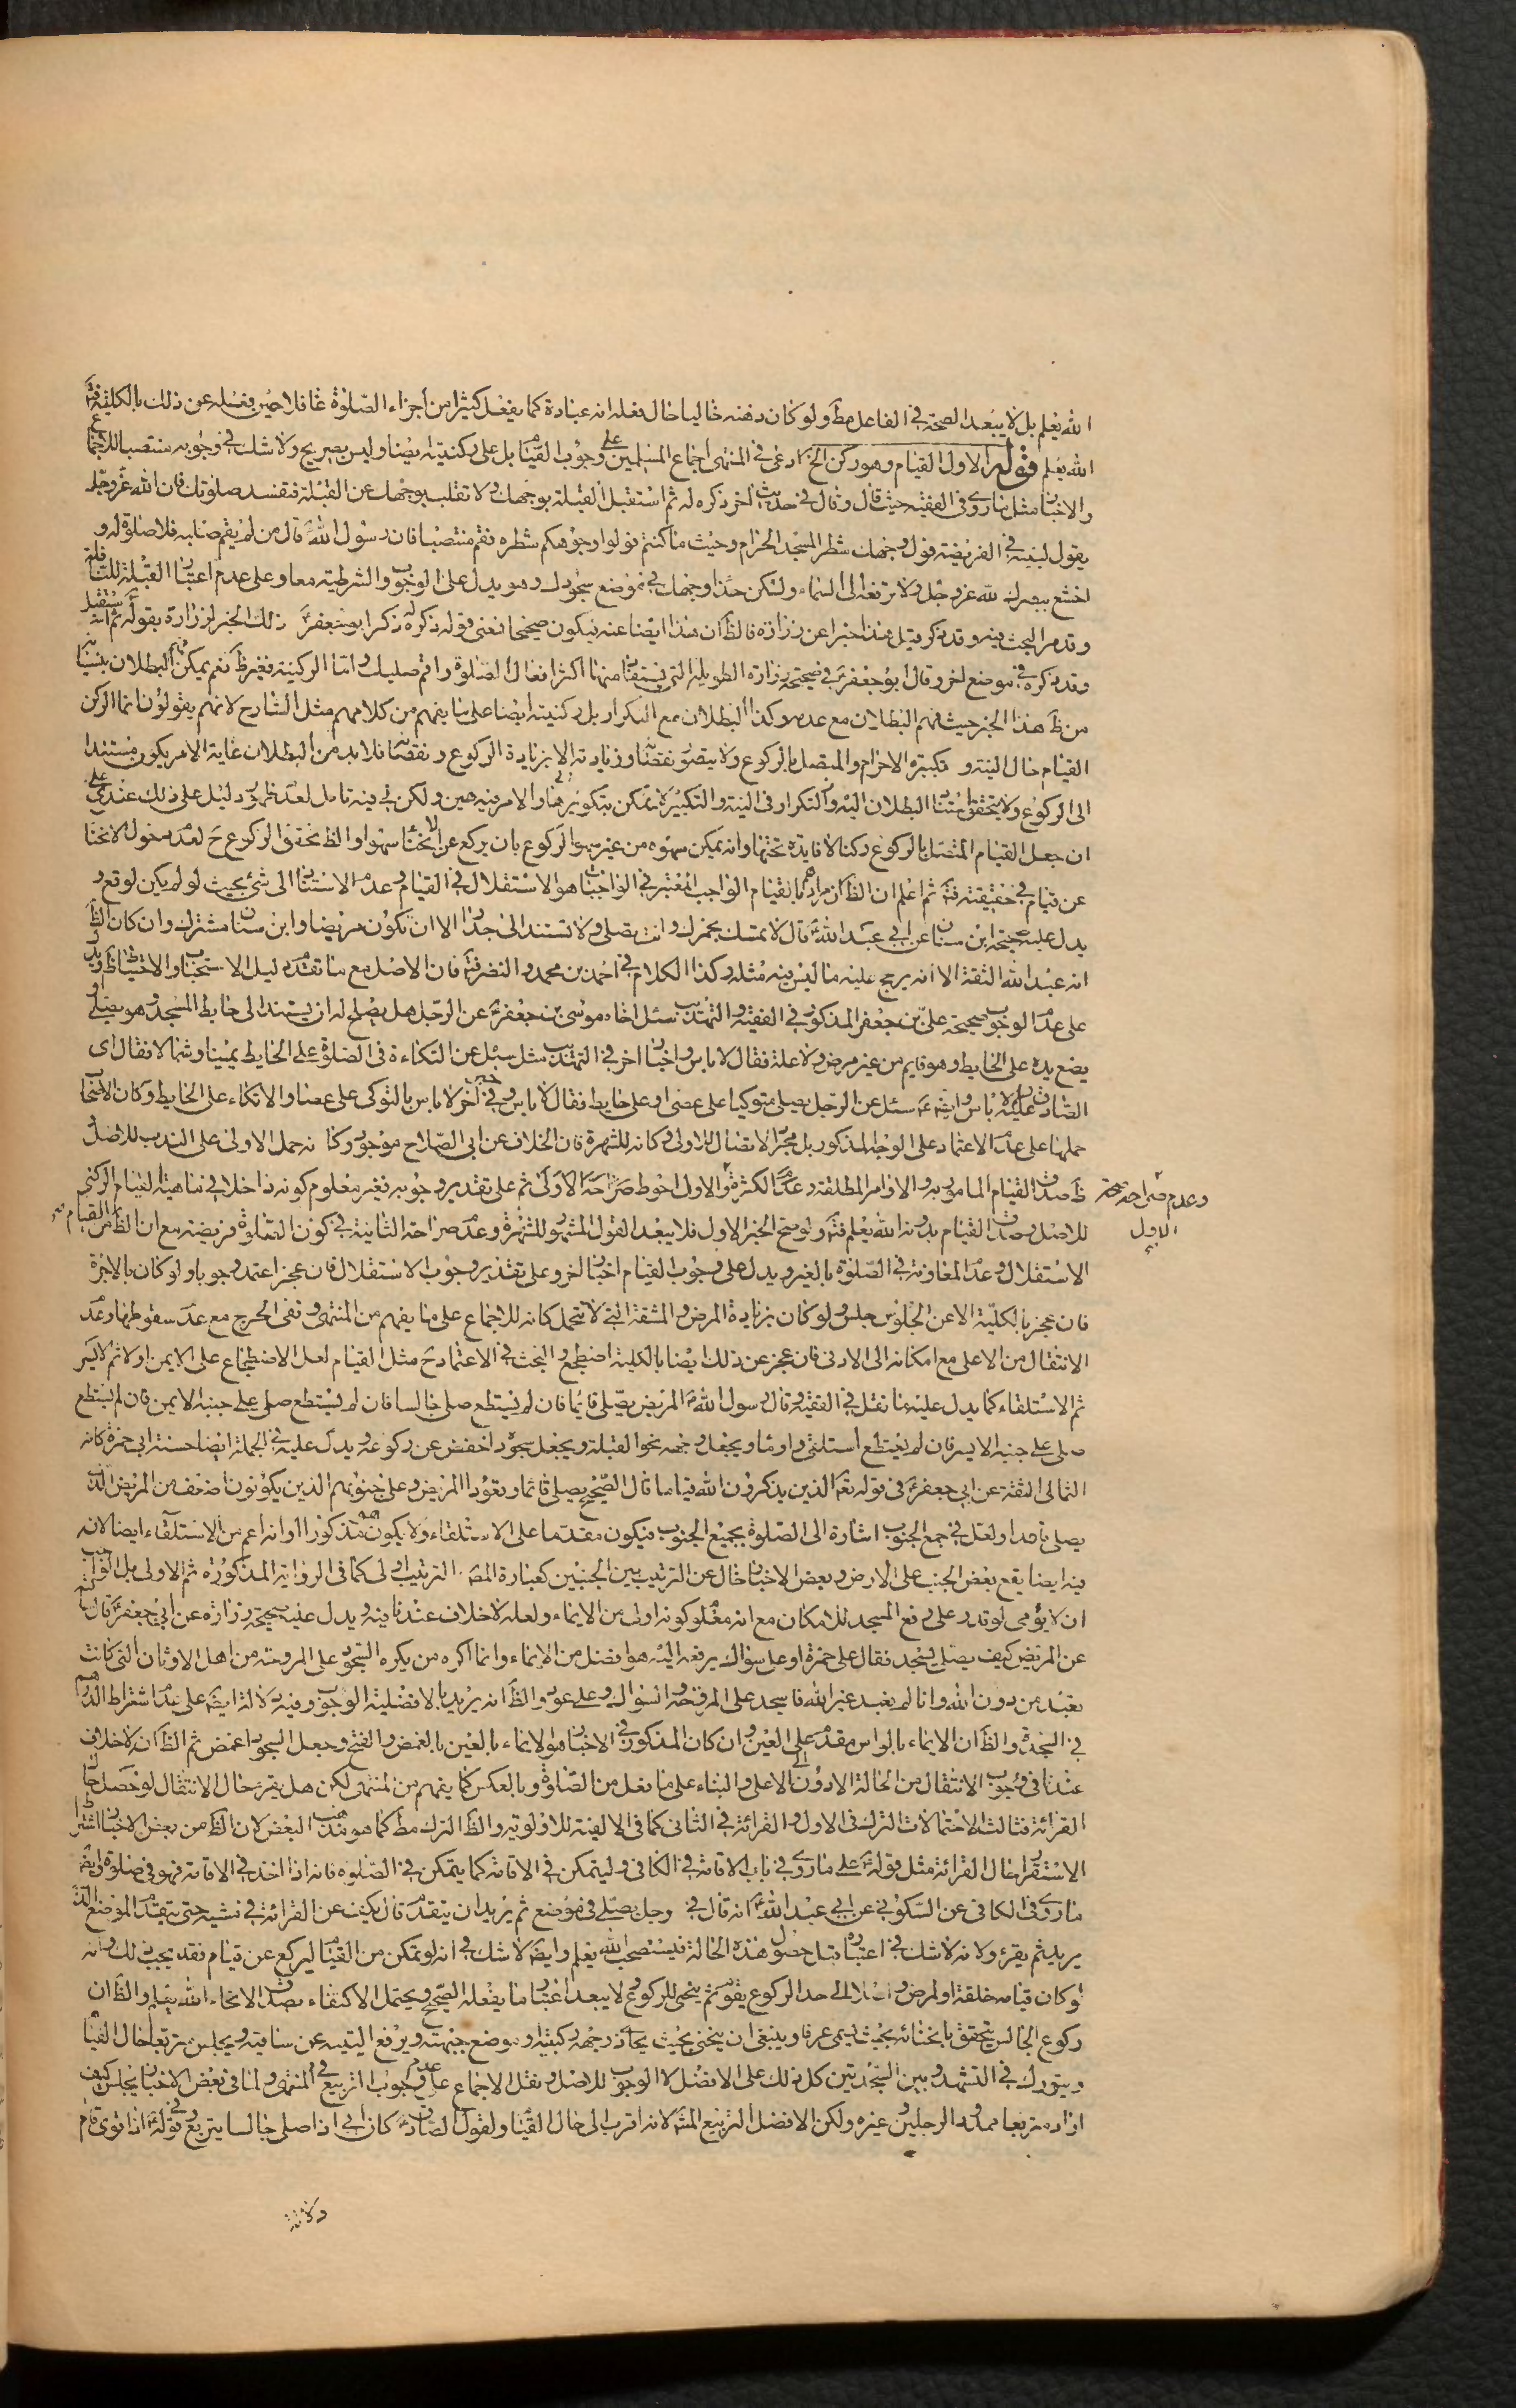 الله يعلم بل لا يبعد الصحة في الفاعل مط ولو كان ذهنه خاليا حال فعله انه عبادة كما يفعل كثيرا من أجزاء الصلوة غافلا حين فعله عن ذلك بالكلية فتم
الله يعلم قوله الاول القيام وهو ركن الخ ادعى في المنتهى اجماع المسلمين على وجوب القيام بل على ركنيته ايضا وليس بصريح ولا شك في وجوبه منتصبا للاجماع
والاخبار مثل ما روى في الفقيه حيث قال وقال في حديث اخر ذكره له ثم استقبل القبلة بوجهك ولا تقلب بوجهك عن القبلة فتفسد صلوتك فان الله عز وجل
يقول لنبيه في الفريضة فول وجهك شطر المسجد الحرام وحيث ما كنتم فولوا وجوهكم شطره فقم منتصبا فان رسول الله قال من لم يقم صلبه فلا صلوة له و
اخشع ببصرك لله عز وجل ولا ترفعه الى السماء ولتكن حذا وجهك في موضع سجودك وهو يدل على الوجوب والشرطية معا وعلى عدم اعتبار القبلة للنافلة
وقد مر البحث فيه وقد ذكر قبل هذا خبرا عن زرارة فالظ ان هذا ايضا عنه فيكون صحيحا فمعنى قوله ذكره له ذكر ابو جعفر ذلك الخبر لزرارة بقوله ثم استقبل
وقد ذكره في موضع اخر وقال ابو جعفر في صحيحة زرارة الطويلة التى يستفاد منها اكثر افعال الصلوة واقم صلبك واما الركنية فغير ظ نعم يمكن البطلان بنسيانه
من ظ هذا الخبر حيث فهم البطلان مع عدمه وكذا البطلان مع التكرار بل ركنيته ايضا على ما يفهم من كلامهم مثل الشارح لانهم يقولون انما الركن
القيام حال النية و تكبيرة الاحرام والمتصل بالركوع ولا يتصور نقصانه وزيادته الا بزيادة الركوع ونقصانه فلا بد من البطلان غاية الامر يكون مستندا
الى الركوع ولا يتحقق استناد البطلان اليه والتكرار في النية والتكبيرة لا يمكن بتكويرها والامر فيه هين ولكن في فيه تامل لعدم ظهور دليل على ذلك عندى على
ان جعل القيام المتصل بالركوع ركنا لا فايدة تحتها وانه يمكن سهوه من غير سهو الركوع بان يركع عن الانحناء سهوا والظ تحقق الركوع ح لعدم دخول الانحنا
عن قيام في حقيقته فتم ثم اعلم ان الظ ان مرادهم بالقيام الواجب المعتبر في الواجبات هو الاستقلال في القيام وعدم الاستناد الى شئ بحيث لو لم يكن لوقع و
يدل عليه صحيحة ابن سنان عن ابى عبد الله قال لا تمسك بخمرك وانت تصلى ولا تستند الى جدار الا ان تكون مريضا وابن سنان مشترك وان كان الظ
انه عبد الله الثقة الا انه يرجح عليه ما ليس فيه مثله وكذا الكلام في احمد بن محمد والنضر فتم فان الاصل مع ما تقدم دليل الاستحباب والاحتياط ظ ويدل
على عدم الوجوب صحيحة على بن جعفر المذكور في الفقيه والتهذيب سئل اخاه موسى بن جعفر عن الرجل هل يصلح له ان يستند الى حايط المسجد وهو يصلى او
يضع يده على الحايط وهو قايم من غير مرض ولا علة فقال لا باس واخبار اخر في التهذيب مثل سئل عن التكاءة في الصلوة على الحايط يمينا وشمالا فقال اى
الصادق عليه لا باس وايضا عنه سئل عن الرجل يصلى متوكيا على عصى او على حايط فقال لا باس وفي خبر اخر لا باس بالتوكى على عصا والاتكاء على الحايط وكان الاصحاب
حملها على عدم الاعتماد على الوجه المذكور بل مجرد الاتصال للاولى وكانه للشهرة فان الخلاف عن ابى الصلاح موجود وكانه حمل الاولى على الندب للاصل و
ظ صدق القيام المامور به والاوامر المطلقة وعدم الكثرة والاول احوط صراحة الاولى ثم على تقدير وجوبه فغير معلوم كونه داخلا في ماهية القيام الركنى
وعدم صراحة صحة الاول
للاصل وصدق القيام بدونه الله يعلم فتم ولو صح الخبر الاول فلا يبعد القول المشهور للشهرة وعدم صراحة الثانية في كون الصلوة فريضة مع ان الظ من القيام
الاستقلال وعدم المعاونة في الصلوة بالغير ويدل على وجوب القيام اخبار اخر وعلى تقدير وجوب الاستقلال فان عجز اعتمد وجوبا ولو كان بالاجرة
فان عجز بالكلية الا عن الجلوس جلس ولو كان بزيادة المرض والمشقة التى لا تتحمل كانه للاجماع على ما يفهم من المنتهى ونفى الحرج مع عدم سقوطها وعدم
الانتقال من الاعلى مع امكانه الى الادنى فان عجز عن ذلك ايضا بالكلية اضطجع والبحث في الاعتماد ح مثل القيام لعل الاضطجاع على الايمن اولا ثم الايسر
ثم الاستلقاء كما يدل عليه ما نقل في الفقيه وقال رسول الله المريض يصلى قائما فان لم يستطع صلى جالسا فان لم يستطع صلى على جنبه الايمن فان لم يستطع
صلى على جنبه الايسر فان لم يستطع استلقى واوما ويجعل وجهه نحو القبلة ويجعل سجوده اخفض من ركوعه ويدل عليه في الجملة ايضا حسنة ابى حمزة كانه
الثمالى الثقة عن ابى جعفر في قوله تعه الذين يذكرون الله قياما قال الصحيح يصلى قائما وقعودا المريض وعلى جنوبهم الذين يكونون اضعف من المريض الذى
يصلى قاعدا ولعل في جمع الجنوب اشارة الى الصلوة بجميع الجنوب فيكون مقدما على الاستلقاء ولا يكون مذكورا او انه اعم من الاستلقاء ايضا لانه
فيه ايضا يقع بعض الجنب على الارض وبعض الاخبار خال عن الترتيب بين الجنبين كعبارة المص الترتيب اولى كما في الرواية المذكورة ثم الاولى بل الواجب
ان لا يؤمى لو قدر على رفع المسجد للامكان مع انه معلوم كونه اولى من الايماء ولعله لا خلاف عندنا فيه ويدل عليه صحيحة زرارة عن ابى جعفر قال سئلته
عن المريض كيف يصلى يسجد فقال على خمرة او على سواك يرفعه اليه هو افضل من الايماء وانما اكره من يكره السجود على المروحة من اهل الاوثان التى كانت
تعبد من دون الله وانا لم نعبد غير الله فاسجد على المروحة والسواك وعلى عود والظ انه يريد بالافضلية الوجوب وفيه دلالة ايضا على عدم اشتراط الدوام
في السجدة والظ ان الايماء بالراس مقدم على العين وان كان المذكور في الاخبار هو الايماء بالعين بالغمض والفتح وجعل السجود اغمض ثم الظ ان لا خلاف
عندنا في وجوب الانتقال من الحالة الادون الى الاعلى والبناء على ما فعل من الصلوة وبالعكس كما يفهم من المنتهى لكن هل يقرء حال الانتقال لو حصل حال
القرائة فثالث الاحتمالات الترك في الاول والقرائة في الثانى كما في الالفية للاولوية والظ الترك مط كما هو مذهب البعض لان الظ من بعض الاخبار اشتراط
الاستقرار حال القرائة مثل قوله على ما روى في باب الاقامة في الكافى وليتمكن في الاقامة كما يتمكن في الصلوة فانه اذا اخذ في الاقامة فهو في صلوة وايضا
ما روى في الكافى عن السكونى عن ابى عبد الله انه قال في رجل يصلى في موضع ثم يريد ان يتقدم قال يكف عن القرائة في مشيه حتى يتقدم الموضع الذى
يريد ثم يقرء ولانه لا شك في اعتباره قبل حصول هذه الحالة فيستصحب الله يعلم وايضا لا شك في انه لو تمكن من القيام ليركع عن قيام فقد يجب ذلك وانه
لو كان قيامه خلقة او لمرض الى حد الركوع يقوم ثم ينحى للركوع لا يبعد اعتبار ما يفعله الصحيح ويحتمل الاكتفاء بصدق الانحناء الله يعلم والظ ان
ركوع الجالس يتحقق بانحنائه بحيث يسمى عرفا وينبغى ان ينحنى بحيث يحاذى وجهه ركبتيه او موضع جبهته ويرفع اليتيه عن ساقيه ويجلس متربعا حال القيام
ويتورك في التشهد وبين السجدتين كل ذلك على الافضل لا الوجوب للاصل ونقل الاجماع على عدم وجوب التربيع في المنتهى ولما في بعض الاخبار يجلس كيف
اراد متربعا ممدود الرجلين وغيره ولكن الافضل التربيع المشه لانه اقرب الى حال القيام ولقول الصادق كان ابى اذا صلى جالسا يتربع وفي قوله اذا نوى قام
ولانه